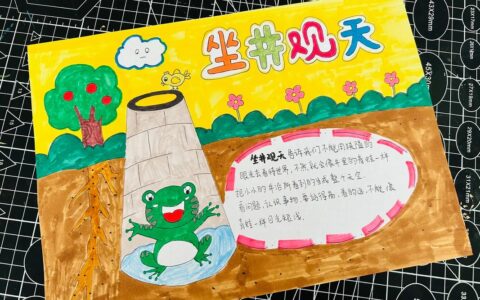 坐井观天
坐井观天告诉我们不能用狭隘的
眼光去看待世界,不然,就会像井里的青蛙一样
把小小的井口所看到的当成整个天空
看问题,认识事物,要站得高,看的远,不能像
青蛙一样目光短浅。